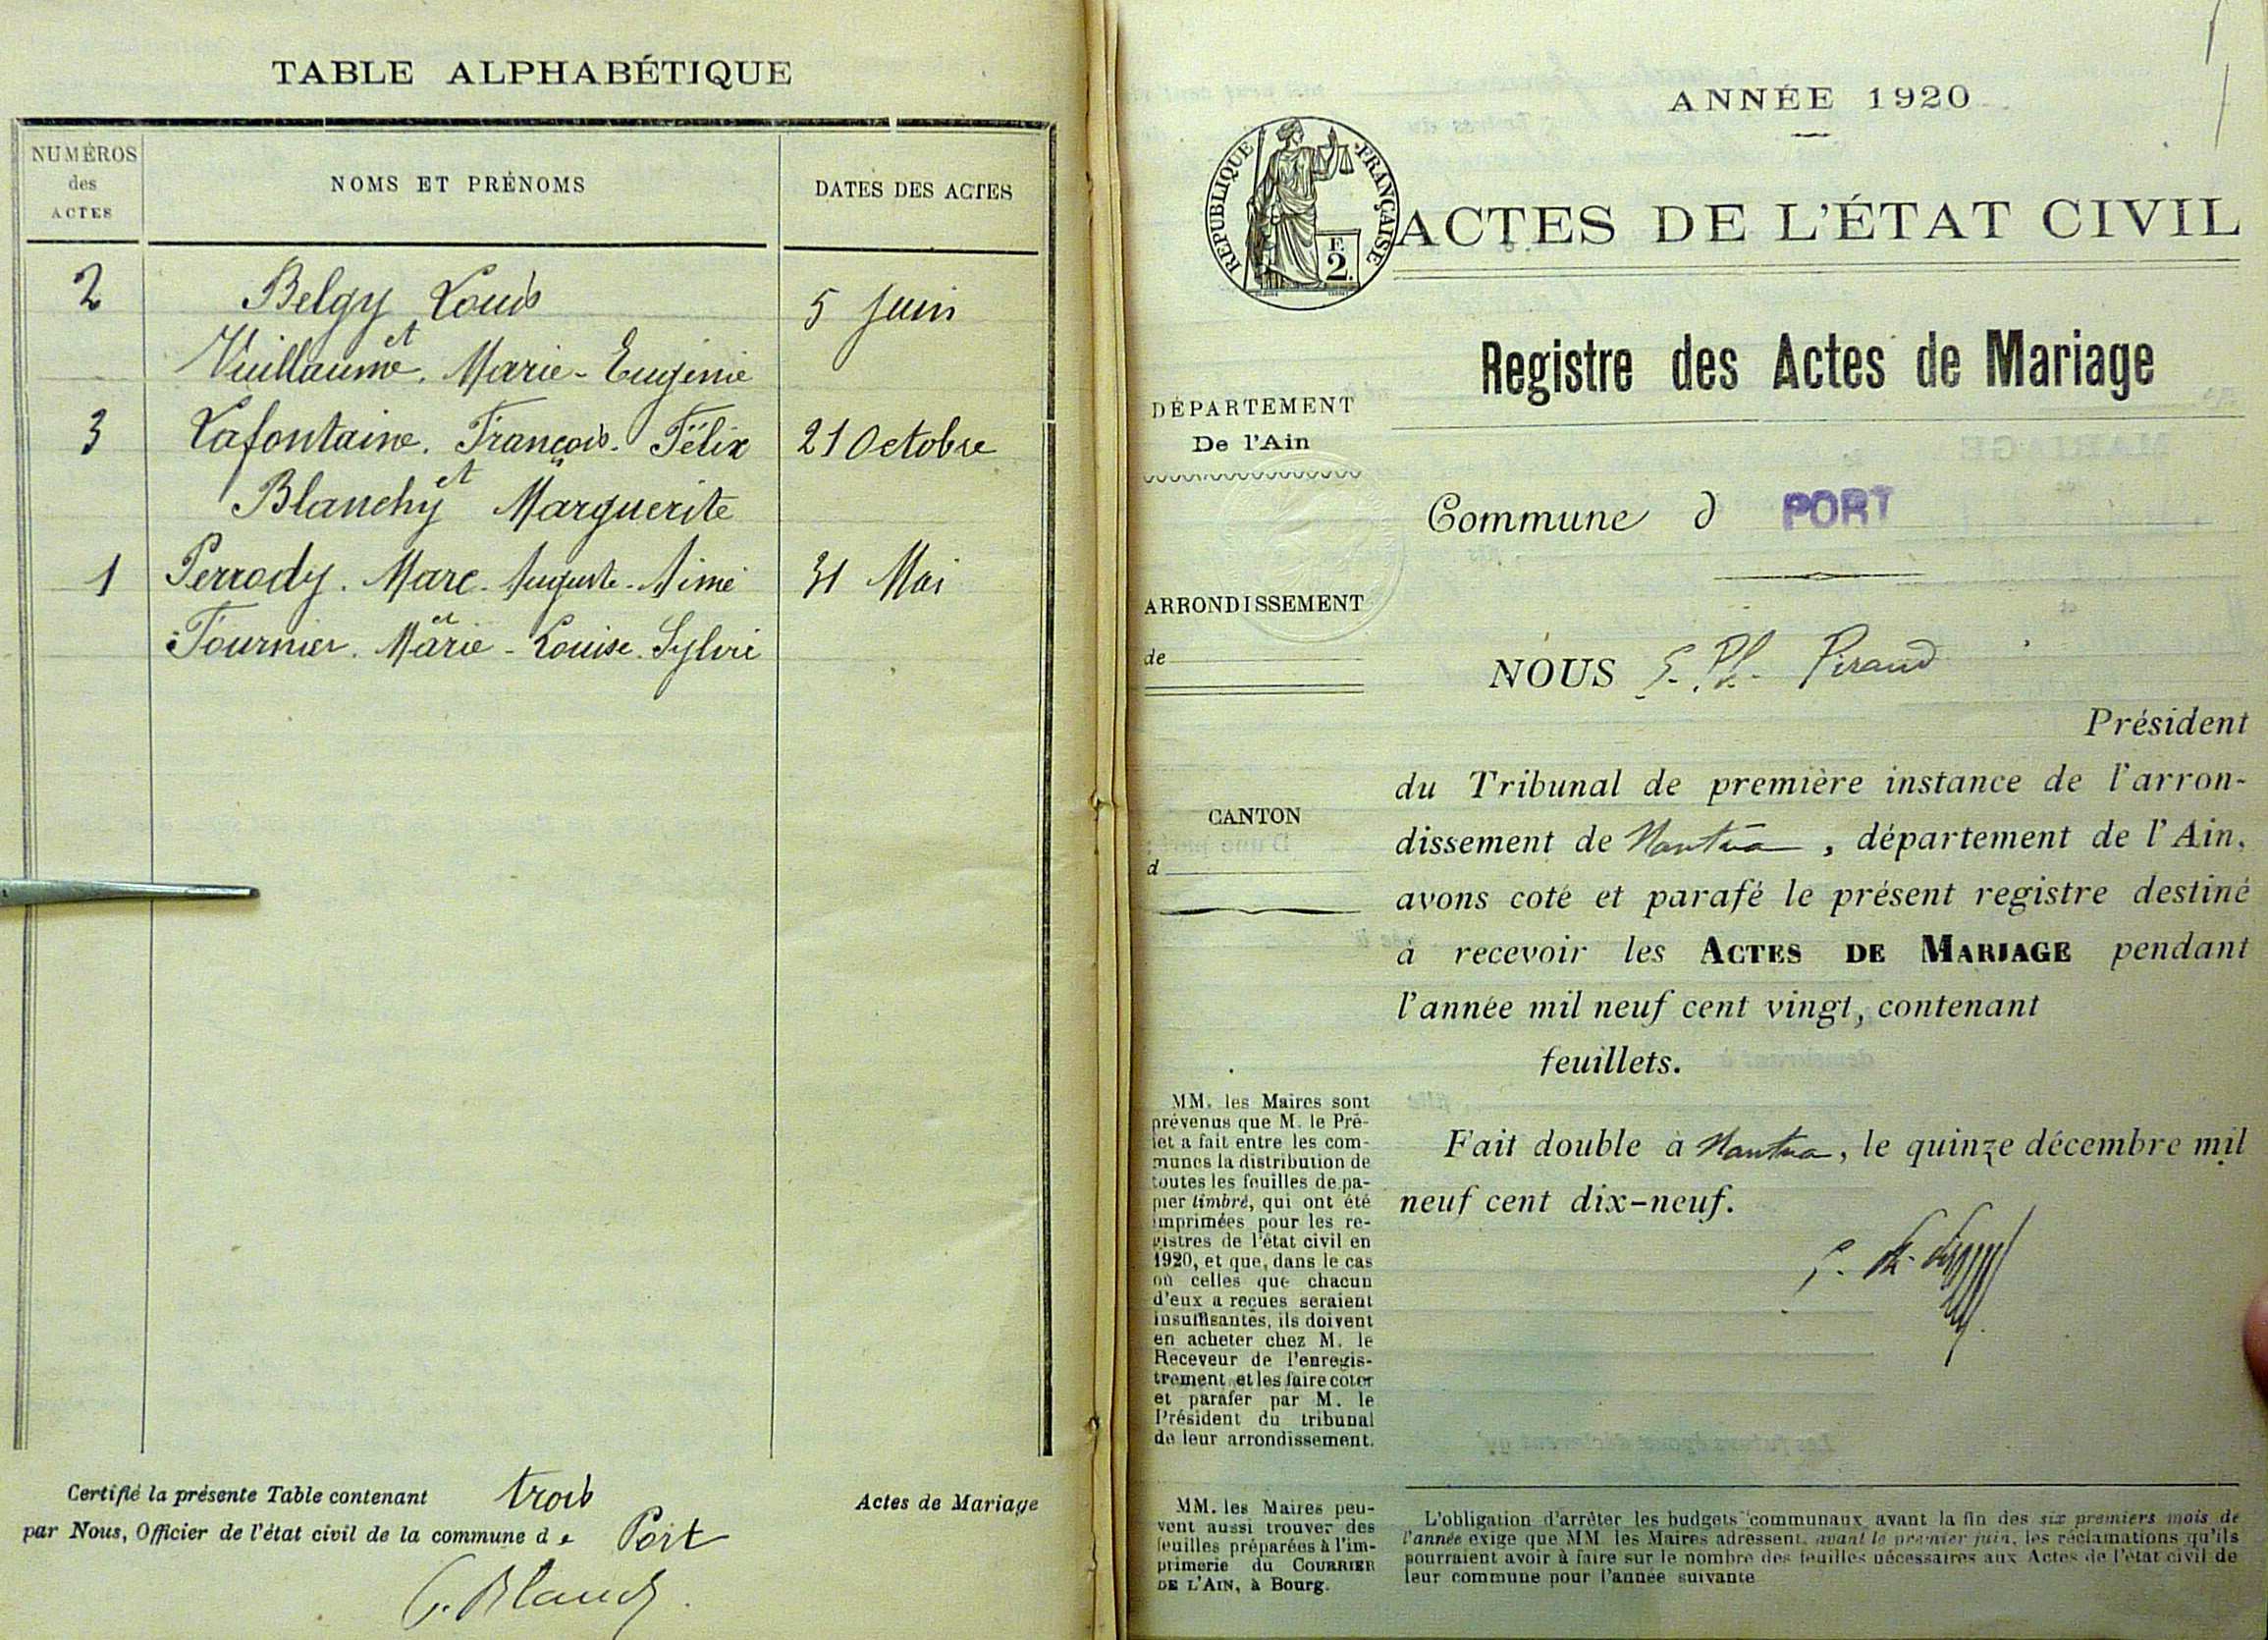 TABLE ALPHABÉTIQUE
NUMÉROS
des
ACTES
NOMS ET PRÉNOMS
DATES DES ACTES
2 Belgy Louis 5 Juin
et
Vuillaume. Marie-Eugénie
3 Lafontaine. François. Félix 21 Octobre
et
Blanchy Marguerite
1 Perrody. Marc. Auguste. Aimé 31 Mai
et
Tournier. Marie-Louise. Sylvie
Certifié la présente Table contenant trois Actes de Mariage
par Nous, Officier de l'état civil de la commune de Port
ANNÉE 1920
RÉPUBLIQUE FRANÇAISE
F.
2.
ACTES DE L'ÉTAT CIVIL
Registre des Actes de Mariage
DÉPARTEMENT
De l'Ain
Commune d PORT
ARRONDISSEMENT
de
NOUS
Président
du Tribunal de première instance de l'arron-
dissement de Nantua, département de l'Ain,
avons coté et parafé le présent registre destiné
à recevoir les ACTES DE MARIAGE pendant
l'année mil neuf cent vingt, contenant
feuillets.
Fait double à Nantua, le quinze décembre mil
neuf cent dix-neuf.
CANTON
d
MM. les Maires sont
prévenus que M. le Pré-
fet a fait entre les com-
munes la distribution de
toutes les feuilles de pa-
pier timbré, qui ont été
imprimées pour les re-
gistres de l'état civil en
1920, et que, dans le cas
où celles que chacun
d'eux a reçues seraient
insuffisantes, ils doivent
en acheter chez M. le
Receveur de l'enregis-
trement et les faire coter
et parafer par M. le
Président du tribunal
de leur arrondissement.
MM. les Maires peu-
vent aussi trouver des
feuilles préparées à l'im-
primerie du COURRIER
DE L'AIN, à Bourg.
L'obligation d'arrêter les budgets communaux avant la fin des six premiers mois de
l'année exige que MM. les Maires adressent, avant le premier juin, les réclamations qu'ils
pourraient avoir à faire sur le nombre des feuilles nécessaires aux Actes de l'état civil de
leur commune pour l'année suivante